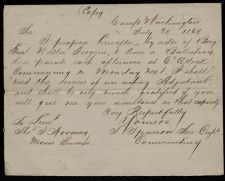 (Copy)
Camp Washington
July 20, 1861
Sir
I propose hereafter, by order of Brig
Genl
to have a Battalion
dress parade each afternoon at 6 O'clock
Commencing on Monday next. I shall
need the services of an acting Adjutant
and shall be very much gratified if you
will give me your assistance in that capacity
Very Respectfully
Yours
To Lieut
Commanding